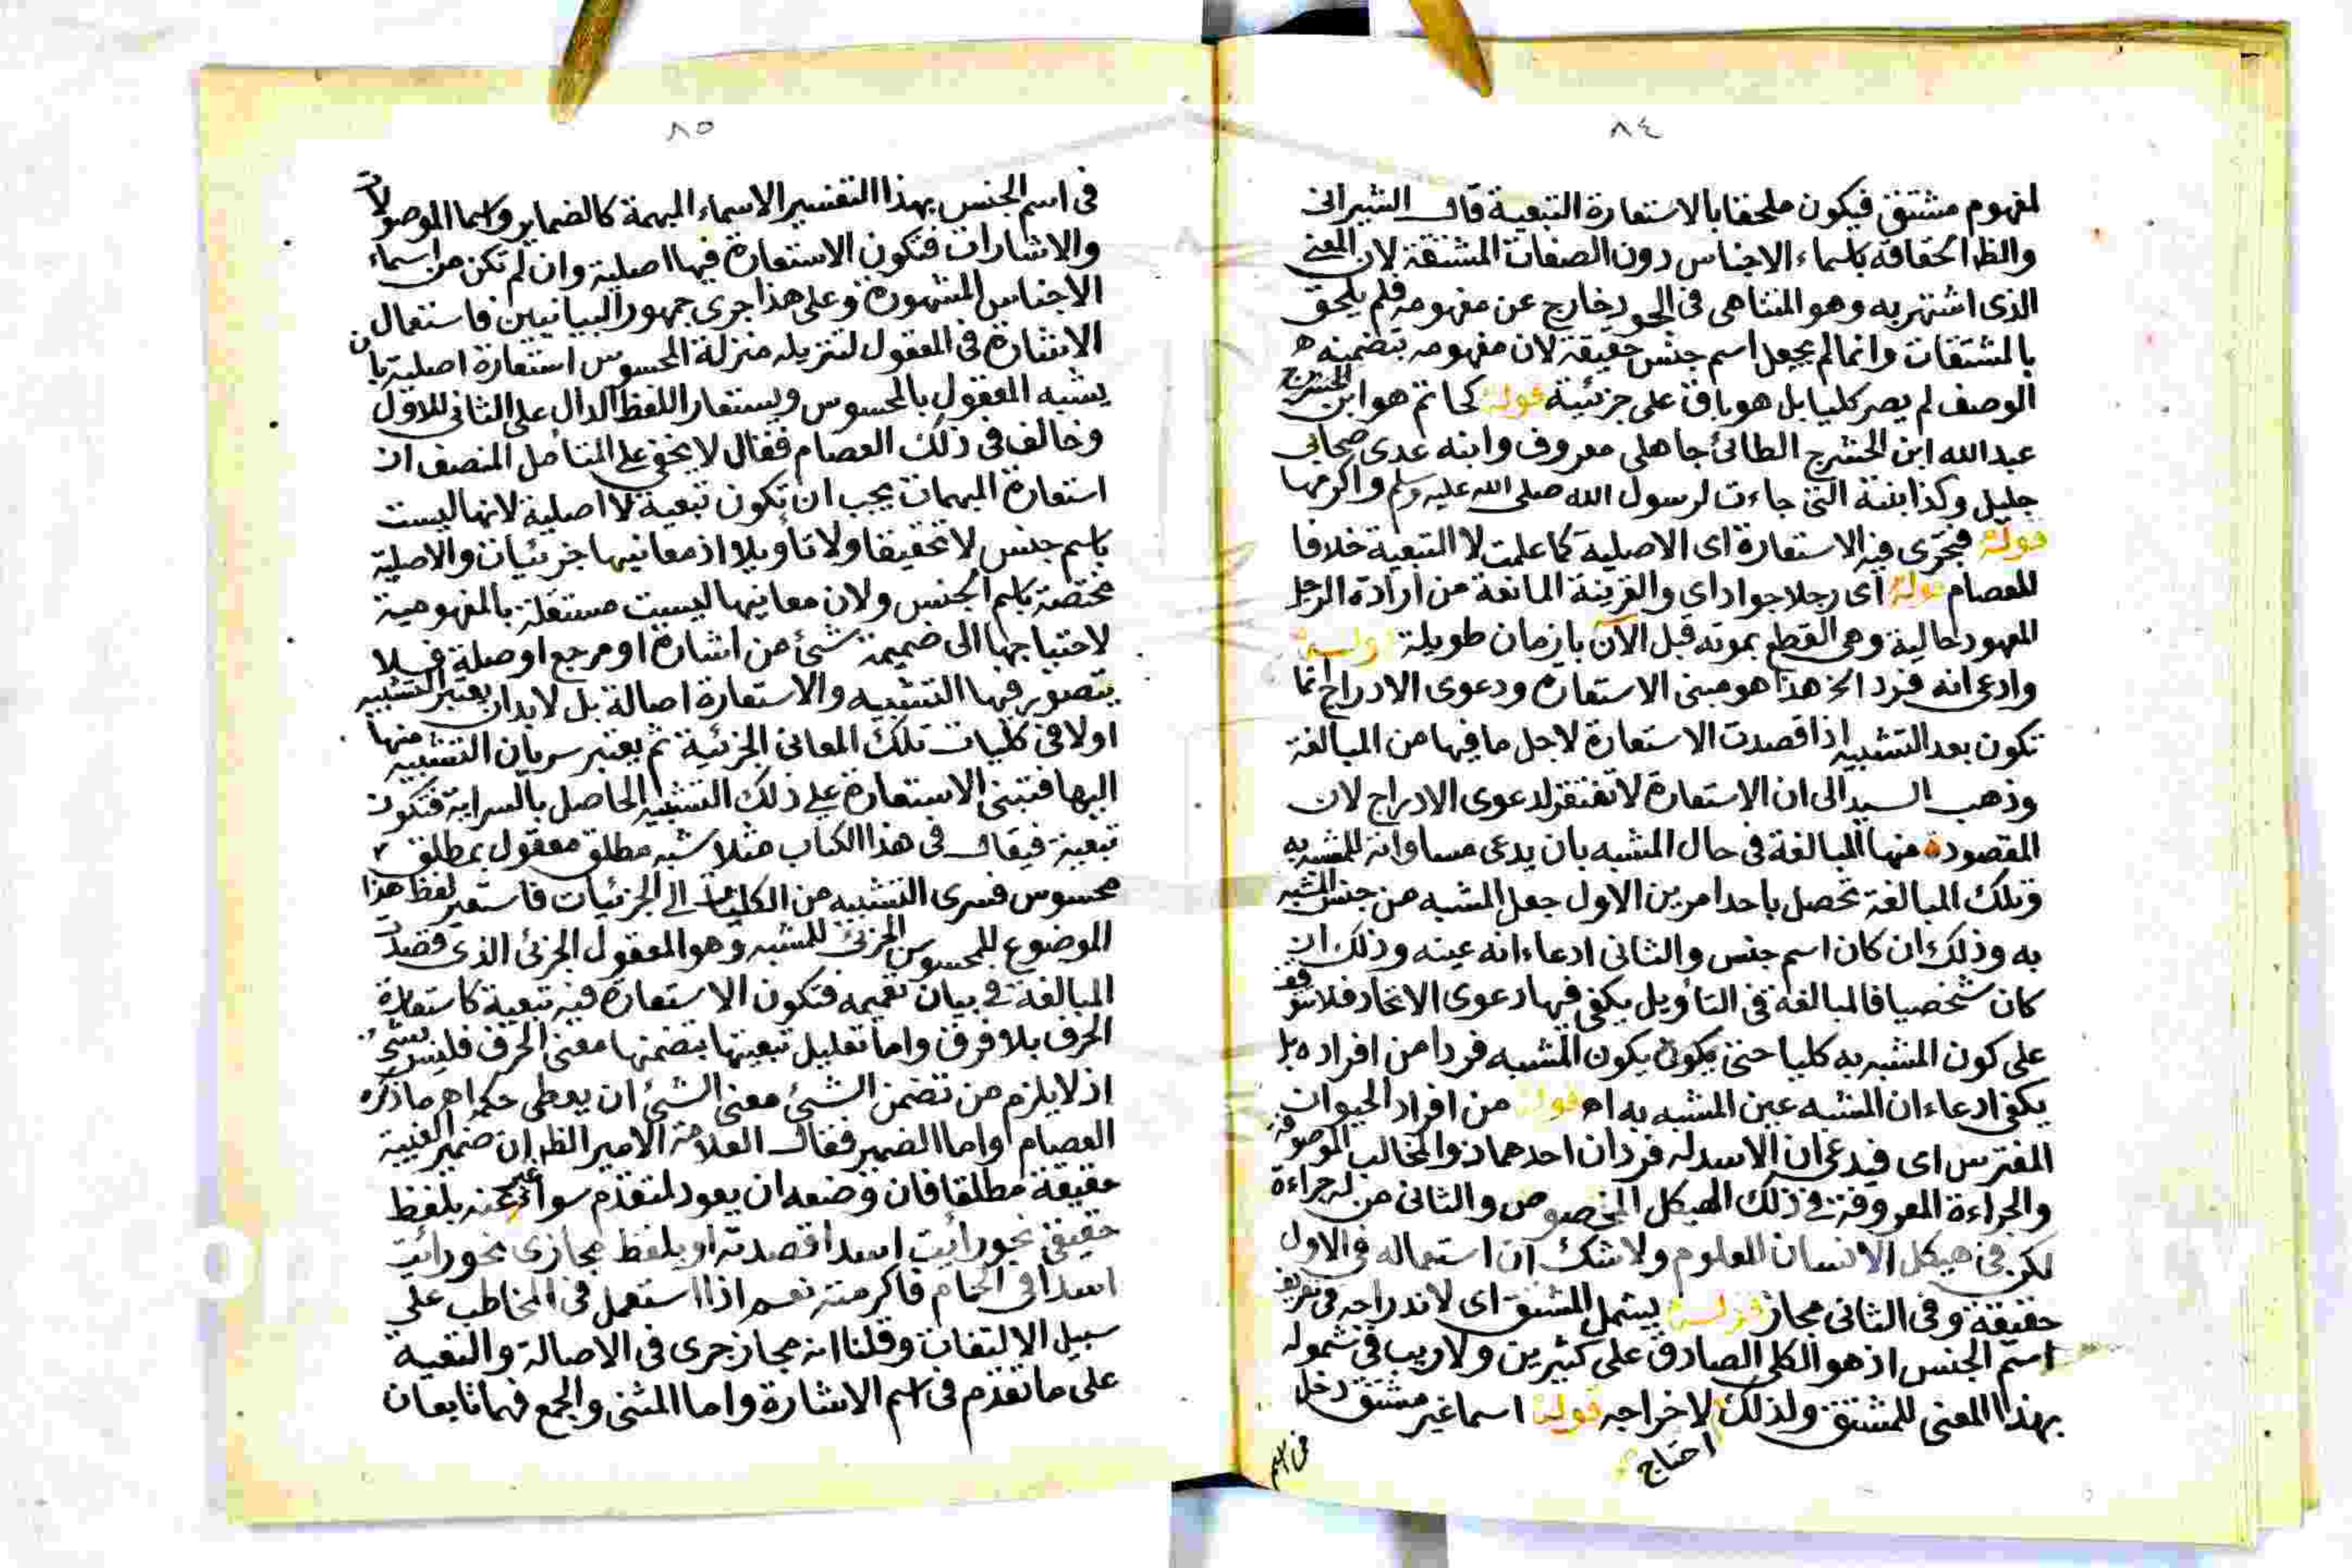 ٨٤
لمفهوم مشتق فيكون ملحقا بالاستعارة التبعية قال الشيرانى
والظ الحقافه باسماء الاجناس دون الصفات المشتقة لان المعنى
الذى اشتهر به وهو المتناهى فى الجود خارج عن مفهومه فلم يلحق
بالمشتقات وانما لم يجعل اسم جنس حقيقة لان مفهومه بتضمينه
الوصف لم يصر كليا بل هو باق على جزئيته قوله كحاتم هو ابن
عبد الله ابن الحشرج الطائى جاهلى معروف وابنه عدى صحابى
جليل وكذا بنته التى جاءت لرسول الله صلى الله عليه وسلم واكرمها
قوله فتجرى فيه الاستعارة اى الاصلية كما علمت لا التبعية خلافا
للعصام قوله اى رجلا جوادا اى والقرينة المانعة من ارادة الرجل
المعهود حالية وهى القطع بموته قبل الآن بازمان طويلة قوله
وادعى انه فرد الخ هذا هو مبنى الاستعارة ودعوى الادراج انما
تكون بعد التشبيه اذا قصدت الاستعارة لاجل ما فيها من المبالغة
وذهب السيد الى ان الاستعارة لا تفتقر لدعوى الادراج لان
المقصودة منها المبالغة فى حال المشبه بان يدعى مساواته للمشبه به
وتلك المبالغة تحصل باحد امرين الاول جعل المشبه من جنس المشبه
به وذلك ان كان اسم جنس والثانى ادعاء انه عينه وذلك ان
كان شخصيا فالمبالغة فى التأويل يكفى فيها دعوى الاتحاد فلا تتوقف
على كون المشبه به كليا حتى يكون يكون المشبه فردا من افراده بل
يكفى ادعاء ان المشبه عين المشبه به اه قوله من افراد الحيوان
المفترس اى فيدعى ان الاسد له فردان احدهما ذو المخالب الموصوفة
والجراءة المعروفة فى ذلك الهيكل المخصوص والثانى من له جراءة
لكن فى هيكل الانسان المعلوم ولا شك ان استعماله فى الاول
حقيقة وفى الثانى مجاز قوله يشمل المشتق اى لاندراجه فى تعريف
اسم الجنس اذ هو الكلى الصادق على كثيرين ولا ريب فى شموله
بهذا المعنى للمشتق ولذلك لاخراجه قوله اسما غير مشتق دخل
احتاج
فى اسم
٨٥
فى اسم الجنس بهذا التفسير الاسماء المبهمة كالضماير واسما الموصولات
والاشارات فتكون الاستعارة فيها اصلية وان لم تكن من اسماء
الاجناس المشهورة وعلى هذا جرى جمهور البيانيين فاستعمال
الاشارة فى المعقول لتنزيله منزلة المحسوس استعارة اصلية بان
يشبه المعقول بالمحسوس ويستعار اللفظ الدال على الثانى للاول
وخالف فى ذلك العصام فقال لا يخفى على المتأمل المنصف ان
استعارة المبهمات يجب ان تكون تبعية لا اصلية لانها ليست
باسم جنس لا تحقيقا ولا تأويلا اذ معانيها جزئيات والاصلية
مختصة باسم الجنس ولان معانيها ليست مستقلة بالمفهومية
لاحتياجها الى ضميمة شئ من اشارة او مرجع او صلة فلا
يتصور فيها التشبيه والاستعارة اصالة بل لابد ان يعتبر التشبيه
اولا فى كليات تلك المعانى الجزئية ثم يعتبر سريان التشبيه منها
اليها فتبنى الاستعارة على ذلك التشبيه الحاصل بالسراية فتكون
تبعية فيقال فى هذا الكتاب مثلا شبه مطلق معقول بمطلق
محسوس فسرى التشبيه من الكليات الى الجزئيات فاستعير لفظ هذا
الموضوع للمحسوس الجزئى للمشبه وهو المعقول الجزئى الذى قصدت
المبالغة فى بيان تعميمه فتكون الاستعارة فيه تبعية كاستعارة
الحرف بلا فرق واما تعليل تبعيتها بتضمنها معنى الحرف فليس بشئ
اذ لا يلزم من تضمن الشئ معنى الشئ ان يعطى حكمه اهـ ما ذكره
العصام واما الضمير فقال العلامة الامير الظ ان ضمير الغيبة
حقيقة مطلقا فان وضعه ان يعود لمتقدم سوا عبر عنه بلفظ
حقيقى نحو رأيت اسدا قصدته او بلفظ مجازى نحو رائيت
اسدا فى الحمام فاكرمته نعم اذا استعمل فى المخاطب على
سبيل الالتفات وقلنا انه مجاز جرى فى الاصالة والتبعية
على ما تقدم فى اسم الاشارة واما المثنى والجمع فهما تابعان